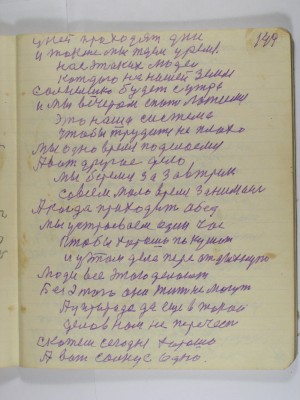 149
у ней проходят дни
и так же мы идем к цели
нас этаких людей
каждого на нашей земле
солнышко будет с утра
и мы вечером спать ложимся
это наша система
чтобы трудить не плохо
мы одно время поделаем
А вот другое дело
мы берем за завтрак
совсем мало время занимаем
А когда приходит обед
мы устраиваем один час
чтобы хорошо покушат
и у том дела пере отдыхнуть
люди все этого делают
Без этого они жит не могут
А природа да еще в такой
делов нам не перечест
скажем сегодня хорошо
А вот солнце одно.